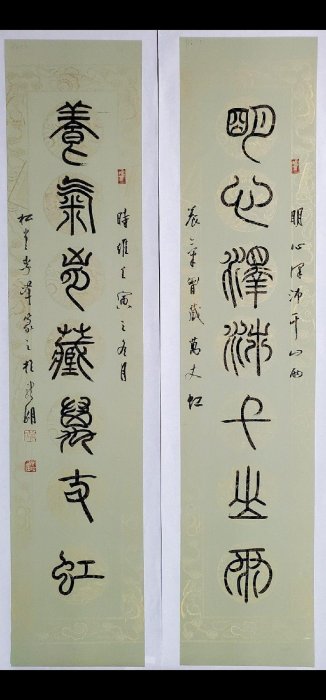 明心澤沛千山雨
明心澤沛千山雨
養氣胸藏萬丈虹
時維壬寅之冬月
養氣胸藏萬丈虹
篆之於